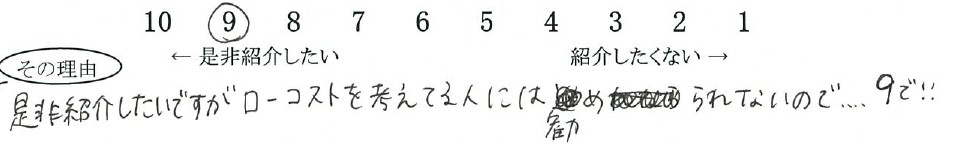 10 9 8 7 6 5 4 3 2 1
← 是非紹介したい 紹介したくない →
その理由
是非紹介したいですがローコストを考えてる人には勧められてないので…. 9で!!